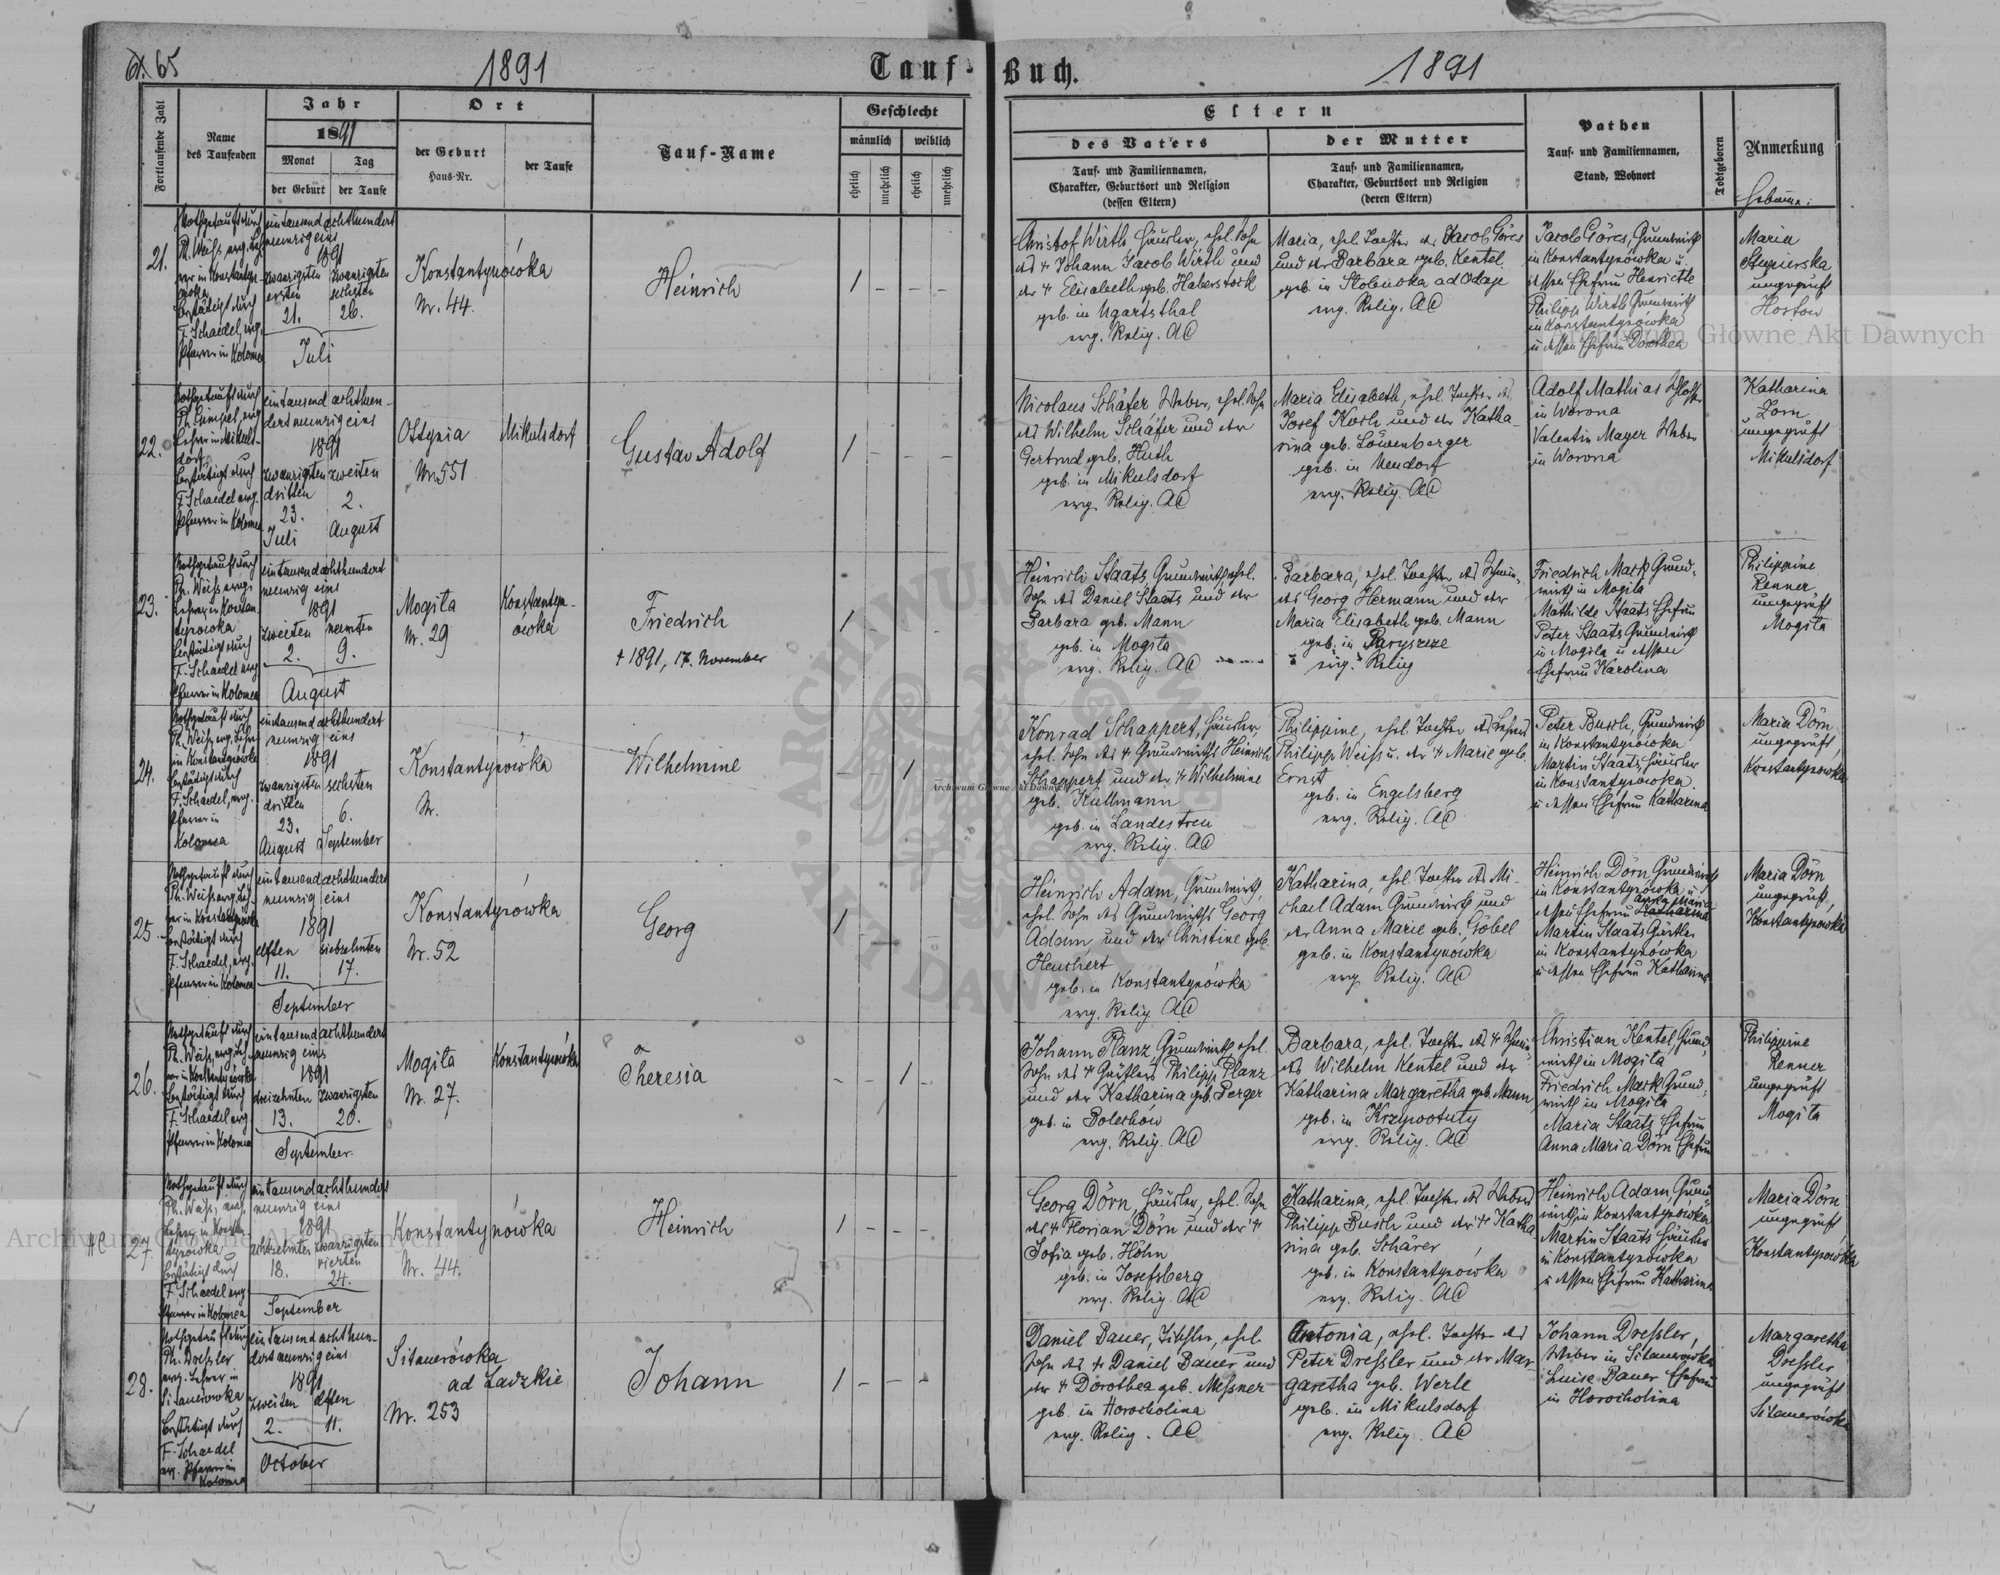 65
1891
Tauf-Buch.
1891
Fortlaufende Zahl
Name
des Taufenden
Jahr
1891
Monat
Tag
der Geburt
der Taufe
Ort
der Geburt
Haus-Nr.
der Taufe
Tauf-Name
Geschlecht
männlich
weiblich
ehelich
unehelich
ehelich
unehelich
Eltern
des Vaters
Tauf- und Familiennamen,
Charakter, Geburtsort und Religion
(dessen Eltern)
der Mutter
Tauf- und Familiennamen,
Charakter, Geburtsort und Religion
(deren Eltern)
Pathen
Tauf- und Familiennamen,
Stand, Wohnort
Todtgeboren
Anmerkung
21.
Nothgetauft durch
Ph. Weiss, evg. Leh-
rer in Konstanty-
nowka
bestätigt durch
F. Schaedel, evg.
Pfarrer in Kolomea
eintausend achthundert
neunzig eins
1891
zwanzigsten
ersten
21.
zwanzigsten
sechsten
26.
Juli
Konstantynówka
Nr. 44.
Heinrich
1 - - -
Christof Wirth, Häusler, ehel. Sohn
des † Johann Jacob Wirth und
der † Elisabeth geb. Haberstock
geb. in Ugartsthal
evg. Relig. AC
Maria, ehel. Tochter des Jacob Göres
und der Barbara geb. Kentel
geb. in Slobunka ad Odaje
evg. Relig. AC
Jacob Göres, Grundwirth
in Konstantynówka u.
dessen Ehefrau Henriette
Philipp Wirth Grundwirth
in Konstantynówka
u dessen Ehefrau Dorothea
Maria
ungeprüft
22.
Nothgetauft durch
Ph. Gimpel, evg
Lehrer in Mikuls-
dorf
bestätigt durch
F. Schaedel evg.
Pfarrer in Kolomea
eintausend achthun-
dert neunzig eins
1891
zwanzigsten
dritten
23.
Juli
zweiten
2.
August
Ottynia
Nr. 551
Mikulsdorf
Gustav Adolf
1 - - -
Nicolaus Schäfer Weber, ehel. Sohn
des Wilhelm Schäfer und der
Gertrud geb. Huth
geb. in Mikulsdorf
evg. Relig. AC
Maria Elisabeth, ehel. Tochter des
Josef Koch und der Katha-
rina geb. Löwenberger
geb. in Neudorf
evg. Relig. AC
Adolf Mathias Schlosser
in Worona
Valentin Mayer Weber
in Worona
Katharina
Zorn
ungeprüft
Mikulsdorf
23.
Nothgetauft durch
Ph. Weiss evg.
Lehrer in Konstan-
tynowka
bestätigt durch
F. Schaedel evg
Pfarrer in Kolomea
eintausend achthundert
neunzig eins
1891
zweiten
2.
neunten
9.
August
Mogila
Nr. 29
Konstantyn-
ówka
Friedrich
† 1891, 17. November
1
Heinrich Staats, Grundwirth, ehel.
Sohn des Daniel Staats und der
Barbara geb. Mann
geb. in Mogila
evg. Relig. AC
Barbara, ehel. Tochter des
des Georg Hermann und der
Maria Elisabeth geb. Mann
geb. in Paryszcze
evg. Relig
Friedrich Mark Grund-
wirth in Mogila
Mathilde Staats Ehefrau
Peter Staats Grundwirth
in Mogila u dessen
Ehefrau Karolina
Philippine
Renner
ungeprüft
Mogila
24.
Nothgetauft durch
Ph. Weiss, evg. Lehr
in Konstantynówka
bestätigt durch
F. Schaedel, evg.
Pfarrer in
Kolomea
eintausend achthundert
neunzig eins
1891
zwanzigsten
dritten
23.
August
sechsten
6.
September
Konstantynówka
Nr.
Wilhelmine
- - 1 -
Konrad Schappert, Häusler,
ehel. Sohn des † Grundwirths Heinrich
Schappert und der † Wilhelmine
geb. Kullmann
geb. in Landestreu
evg. Relig. AC
Philippine, ehel. Tochter des Lehrers
Philipp Weiss u. der † Marie geb.
Ernst
geb. in Engelsberg
evg. Relig. AC
Peter Busch, Grundwirth
in Konstantynówka
Martin Staats Häusler
in Konstantynówka
u dessen Ehefrau Katharina
Maria Dörn
ungeprüft,
Konstantynowka
25.
Nothgetauft durch
Ph. Weiss evg. Leh-
rer in Konstantynówka
bestätigt durch
F. Schaedel, evg.
Pfarrer in Kolomea
eintausend achthundert
neunzig eins
1891
elften
11.
siebzehnten
17.
September
Konstantynówka
Nr. 52
Georg
1
Heinrich Adam, Grundwirth,
ehel. Sohn des Grundwirths Georg
Adam, und der Christine geb.
Heuchert
geb. in Konstantynówka
evg. Relig. AC
Katharina, ehel. Tochter des Mi-
chael Adam Grundwirth und
der Anna Marie geb. Göbel
geb. in Konstantynówka
evg. Relig. AC
Heinrich Dörn Grundwirth
in Konstantynówka u
Anna Maria
dessen Ehefrau Katharina
Martin Staats Gärtler
in Konstantynówka
u dessen Ehefrau Katharina
Maria Dörn
ungeprüft,
Konstantynówka
26.
Nothgetauft durch
Ph. Weiss, evg. Leh-
rer in Konstantynówka
bestätigt durch
F. Schaedel, evg
Pfarrer in Kolomea
eintausend achthundert
neunzig eins
1891
dreizehnten
13.
zwanzigsten
20.
September
Mogila
Nr. 27.
Konstantynówka
Theresia
- - 1 -
Johann Planz Grundwirth, ehel.
Sohn des † Gärtlers Philipp Planz
und der Katharina geb. Perger
geb. in Bolechów
evg. Relig. AC
Barbara, ehel. Tochter des †
des Wilhelm Kentel und der
Katharina Margaretha geb. Mann
geb. in Krzywotuly
evg. Relig. AC
Christian Kentel, Grund-
wirth in Mogila
Friedrich Mark Grund-
wirth in Mogila
Maria Staats Ehefrau
Anna Maria Dörn Ehefrau
Philippine
Renner
ungeprüft
Mogila
27.
Nothgetauft durch
Ph. Weiss, evg.
Lehrer in Konstan-
tynówka
bestätigt durch
F. Schaedel evg
Pfarrer in Kolomea
eintausend achthundert
neunzig eins
1891
achtzehnten
18.
zwanzigsten
vierten
24.
September
Konstantynówka
Nr. 44.
Heinrich
1 - - -
Georg Dörn, Häusler, ehel. Sohn
des † Florian Dörn und der †
Sofia geb. Höhn
geb. in Josefsberg
evg. Relig. AC
Katharina, ehel. Tochter des Webers
Philipp Busch und der † Katha
rina geb. Schärer
geb. in Konstantynówka
evg. Relig. AC
Heinrich Adam Grund-
wirth in Konstantynówka
Martin Staats Häusler
in Konstantynówka
u dessen Ehefrau Katharina
Maria Dörn
ungeprüft
Konstantynowka
28.
Nothgetauft durch
Ph. Dressler
evg. Lehrer in
Sitauerowka
bestätigt durch
F. Schaedel
evg. Pfarrer in
Kolomea
eintausend achthun-
dert neunzig eins
1891
zweiten
2.
elften
11.
October
Sitauerówka
ad Ladzkie
Nr. 253
Johann
1 - - -
Daniel Bauer, Tischler, ehel.
Sohn des † Daniel Bauer und
der † Dorothea geb. Messner
geb. in Horocholina
evg. Relig. AC
Antonia, ehel. Tochter des
Peter Dressler und der Mar-
garetha geb. Werle
geb. in Mikulsdorf
evg. Relig. AC
Johann Dressler,
Weber in Sitauerowka
Luise Bauer Ehefrau
in Horocholina
Margaretha
Dressler
ungeprüft
Sitauerówka
Archiwum Główne Akt Dawnych